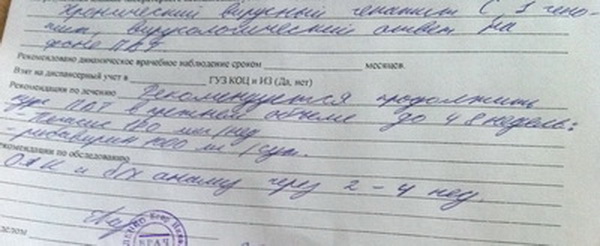 Хронический вирусный гепатит С 1 гено-
тип, вирусологический ответ на
фоне ПВТ
Рекомендовано динамическое врачебное наблюдение сроком месяцев.
Взят на диспансерный учет в ГУЗ КОЦ и ИЗ (Да, нет)
Рекомендации по лечению Рекомендуется продолжить
курс ПВТ в прежнем объеме до 48 недель:
- пегасис 180 мкг/нед
- рибавирин 1000 мг/сут.
рекомендации по обследованию
ОАК и б/х анализ через 2-4 нед.
ВРАЧ